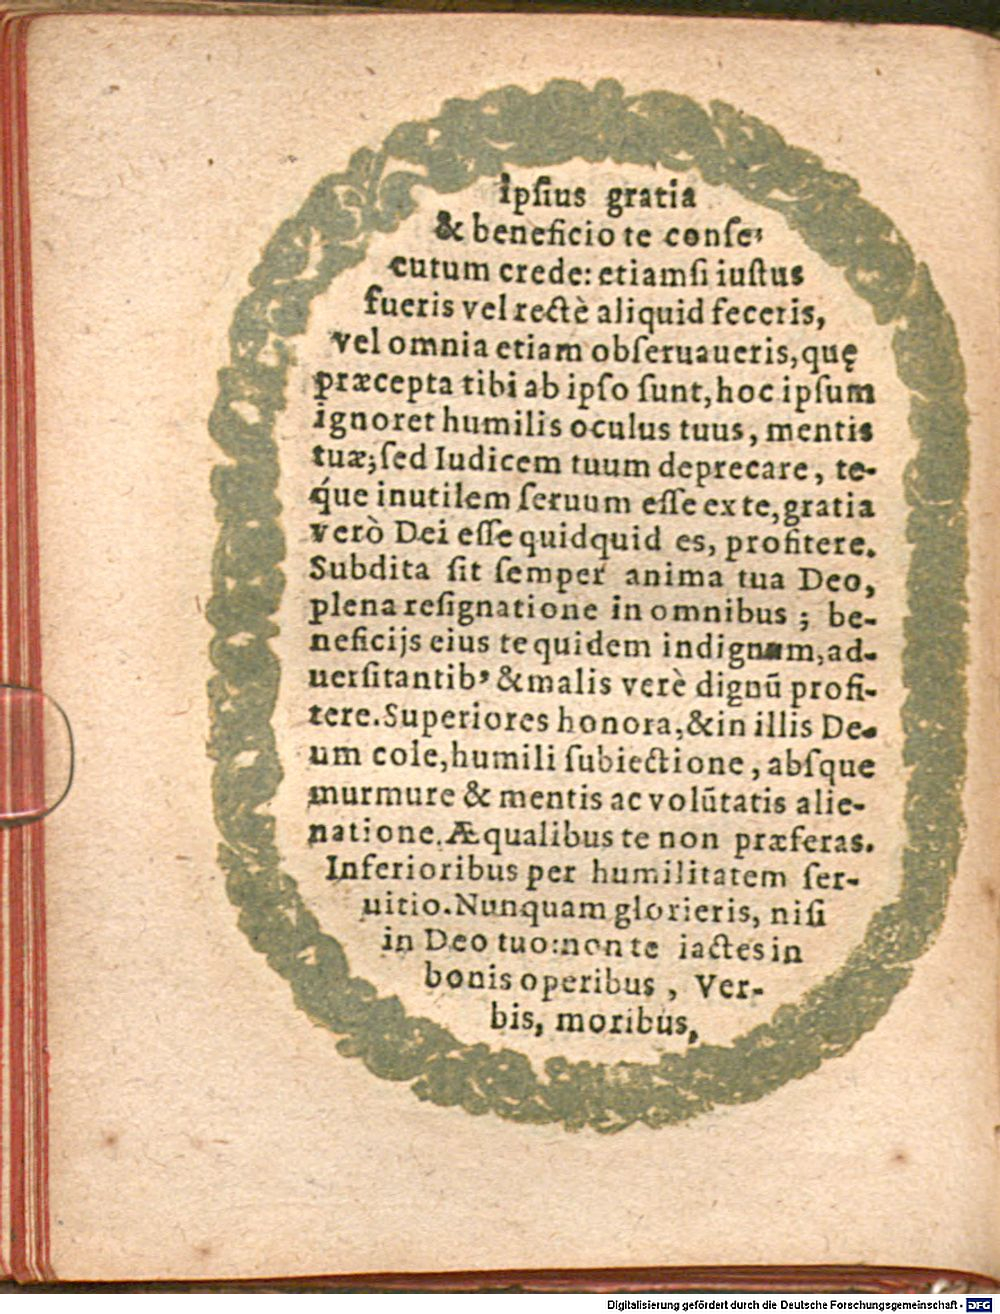 Ipſius gratia
& beneficio te conſe-
cutum crede: etiamſi iuſtus
fueris vel rectè aliquid feceris,
vel omnia etiam obſeruaueris, quę
præcepta tibi ab ipſo ſunt, hoc ipſum
ignoret humilis oculus tuus, mentis
tuæ; ſed Iudicem tuum deprecare, te-
q́ue inutilem ſeruum eſſe ex te, gratia
verò Dei eſſe quidquid es, profitere.
Subdita ſit ſemper anima tua Deo,
plena reſignatione in omnibus; be-
neficijs eius te quidem indignum, ad-
uerſitantib' & malis verè dignũ profi-
tere. Superiores honora, & in illis De-
um cole, humili ſubiectione, abſque
murmure & mentis ac volũtatis alie-
natione. Æqualibus te non præferas.
Inferioribus per humilitatem ſer-
uitio. Nunquam glorieris, niſi
in Deo tuo: non te iactes in
bonis operibus, Ver-
bis, moribus,
Digitalisierung gefördert durch die Deutsche Forschungsgemeinschaft - DFG